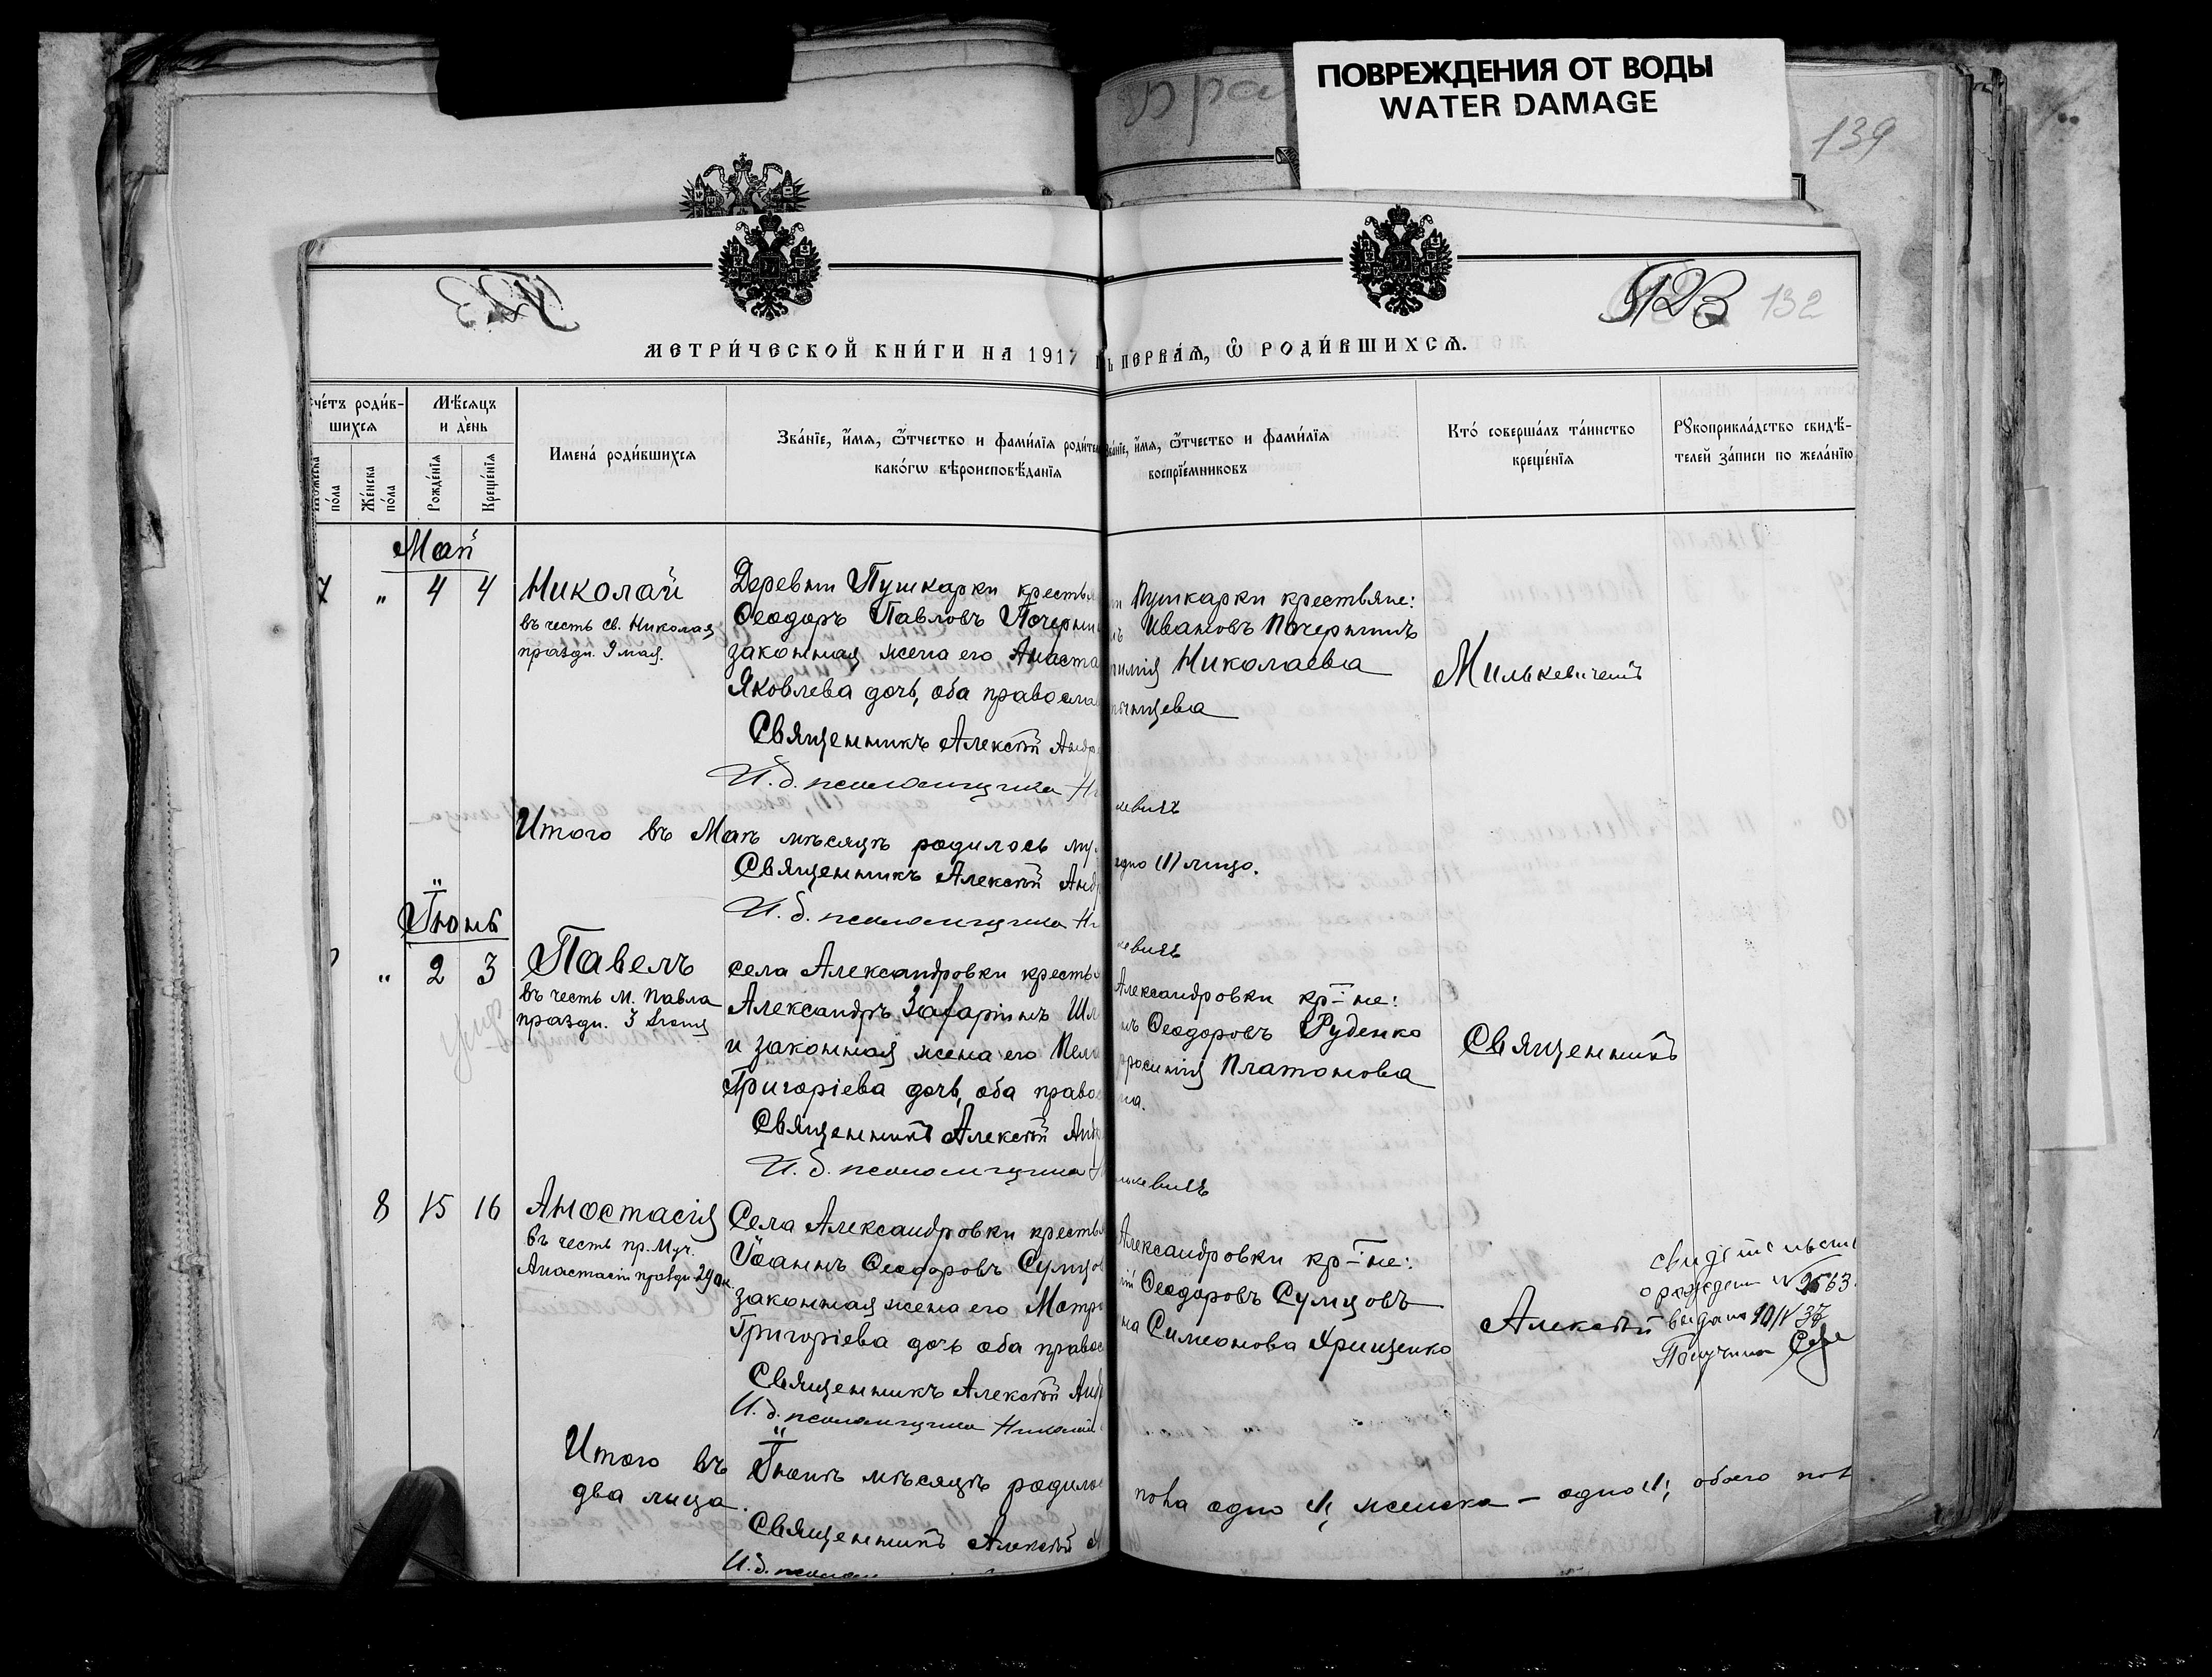 ПОВРЕЖДЕНИЯ ОТ ВОДЫ
WATER DAMAGE
139
132
МЕТРИ́ЧЕСКОЙ КНИ́ГИ НА 1917
ПЕРВАЯ, Ѡ РОДИ́ВШИХСЯ.
Сче́тъ роди́в-
шихся
Мѣ́сяцъ
и де́нь
Мꙋ́жеска
по́ла
Же́нска
по́ла
Рожде́нїѧ
Креще́нїѧ
Имена́ роди́вшихся
Зва́нїе, и́мѧ, ѻ́тчество и фами́лїѧ родите
како́гѡ вѣроисповѣ́данїѧ
Зва́нїе, и́мѧ, ѻ́тчество и фами́лїѧ
воспрїе́мниковъ
Кто́ соверша́лъ та́инство
креще́нїѧ
Рꙋкоприкла́дство свидѣ́-
телей за́писи по жела́нїю
Май
7 " 4 4 Николай
въ честь св. Николая
праздн. 9 мая.
Деревни Пушкарки крестья
Ѳеодоръ Павловъ
законная жена его Анаста
Яковлева дочь, оба православ
Священникъ Алексѣй Андр
И. д. псаломщика Ни
Пушкарки крестьяне:
Ивановъ
Николаева
Милькевичемъ
Итого въ Маѣ мѣсяцѣ родилось му
Священникъ Алексѣй Андр
И. д. псаломщика Ни
одно (1) лицо.
Іюнь
" 2 3 Павелъ
въ честь М. Павла
праздн. 3 Іюня
села Александровки крестья
Александръ Захаріинъ
и законная жена его Пела
Григоріева дочь, оба правос
Священникъ Алексѣй Андр
И. д. псаломщика
Александровки кр-не:
Ѳеодоровъ Руденко
Платонова
Священникъ
8 15 16 Анастасія
въ честь пр. Муч.
Анастасіи праздн 29 ок.
Села Александровки крестья
Іоаннъ Ѳеодоровъ Сумцов
законная жена его Матро
Григоріева дочь оба правос
Священникъ Алексѣй Андр
И. д. псаломщика Николай
Александровки кр-не:
Ѳеодоровъ Сумцовъ
Симеонова Хрищенко
Алексѣй
свидѣтельств
о рожден
выдано 10/IV 37
Получила
Итого въ Іюнѣ мѣсяцѣ родилос
два лица.
Священникъ Алексѣй А
И. д. псалом
пола одно (1), женска – одно (1), обоего пол